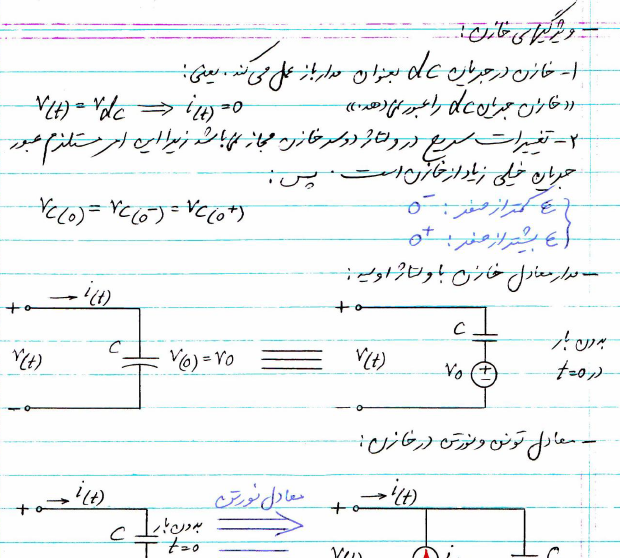 - ویژگیهای خازن:
۱- خازن در جریان dc بعنوان مدار باز عمل می کند. یعنی:
«خازن جریان dc را عبور نمی دهد.» V(t) = Vdc ⟹ i(t) = 0
۲- تغییرات سریع در ولتاژ دوسر خازن مجاز نمی باشد زیرا این امر مستلزم عبور
جریان خیلی زیاد از خازن است. پس:
VC(0) = VC(0⁻) = VC(0⁺)
ε کمتر از صفر: 0⁻
ε بیشتر از صفر: 0⁺
- مدار معادل خازن با ولتاژ اولیه:
+ i(t) +
V(t) C V(0) = V0 V(t) C V0 + -
بدون بار
در t=0
- -
- معادل تونن و نورتن در خازن:
+ i(t) معادل نورتن + i(t)
C بدون بار
t=0
V(t) i C